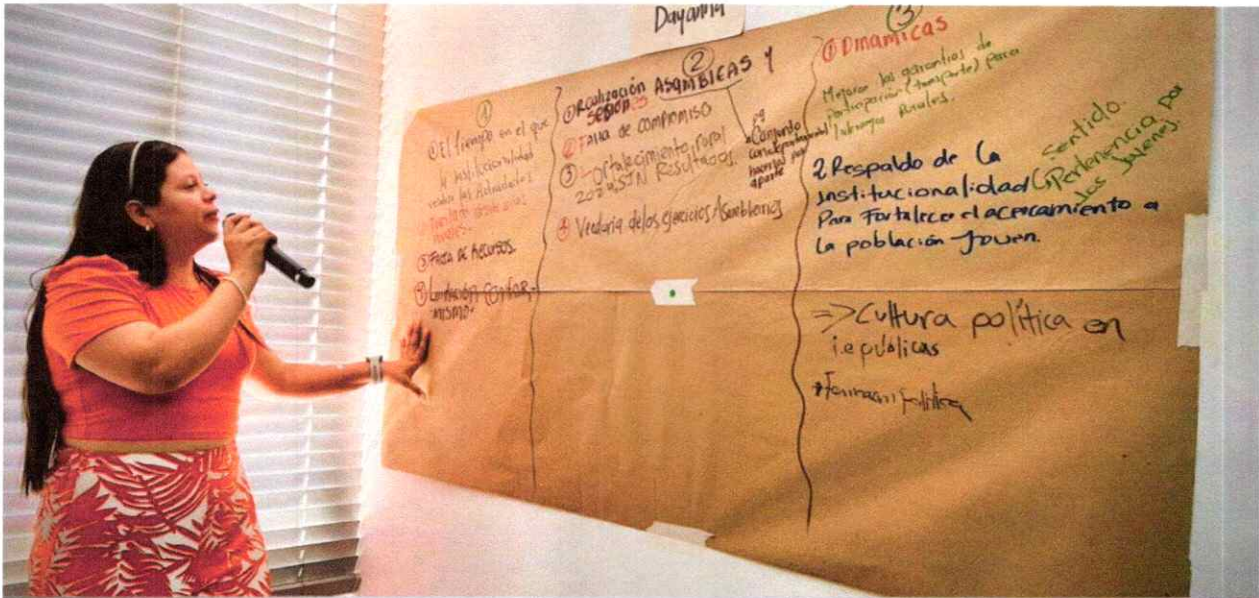 Dayanna
①
① El Tiempo en el que
la institucionalidad
realiza las Actividades
rurales.
③ Falta de Recursos.
mismo.
②
① Realización ASAMBLEAS y
② Falta de compromiso
③ Fortalecimiento rural
SIN Resultados.
④ Veeduria de los ejercicios Asamblearios
aparte
③
① Dinamicas
Mejorar las garantias de
participación (transporte) para
liderazgos Rurales.
2 Respaldo de la
institucionalidad
Para Fortalecer el acercamiento a
la población Joven.
Sentido
Pertenencia por
los Jovenes.
=> Cultura política en
i.e publicas
Formacion politica